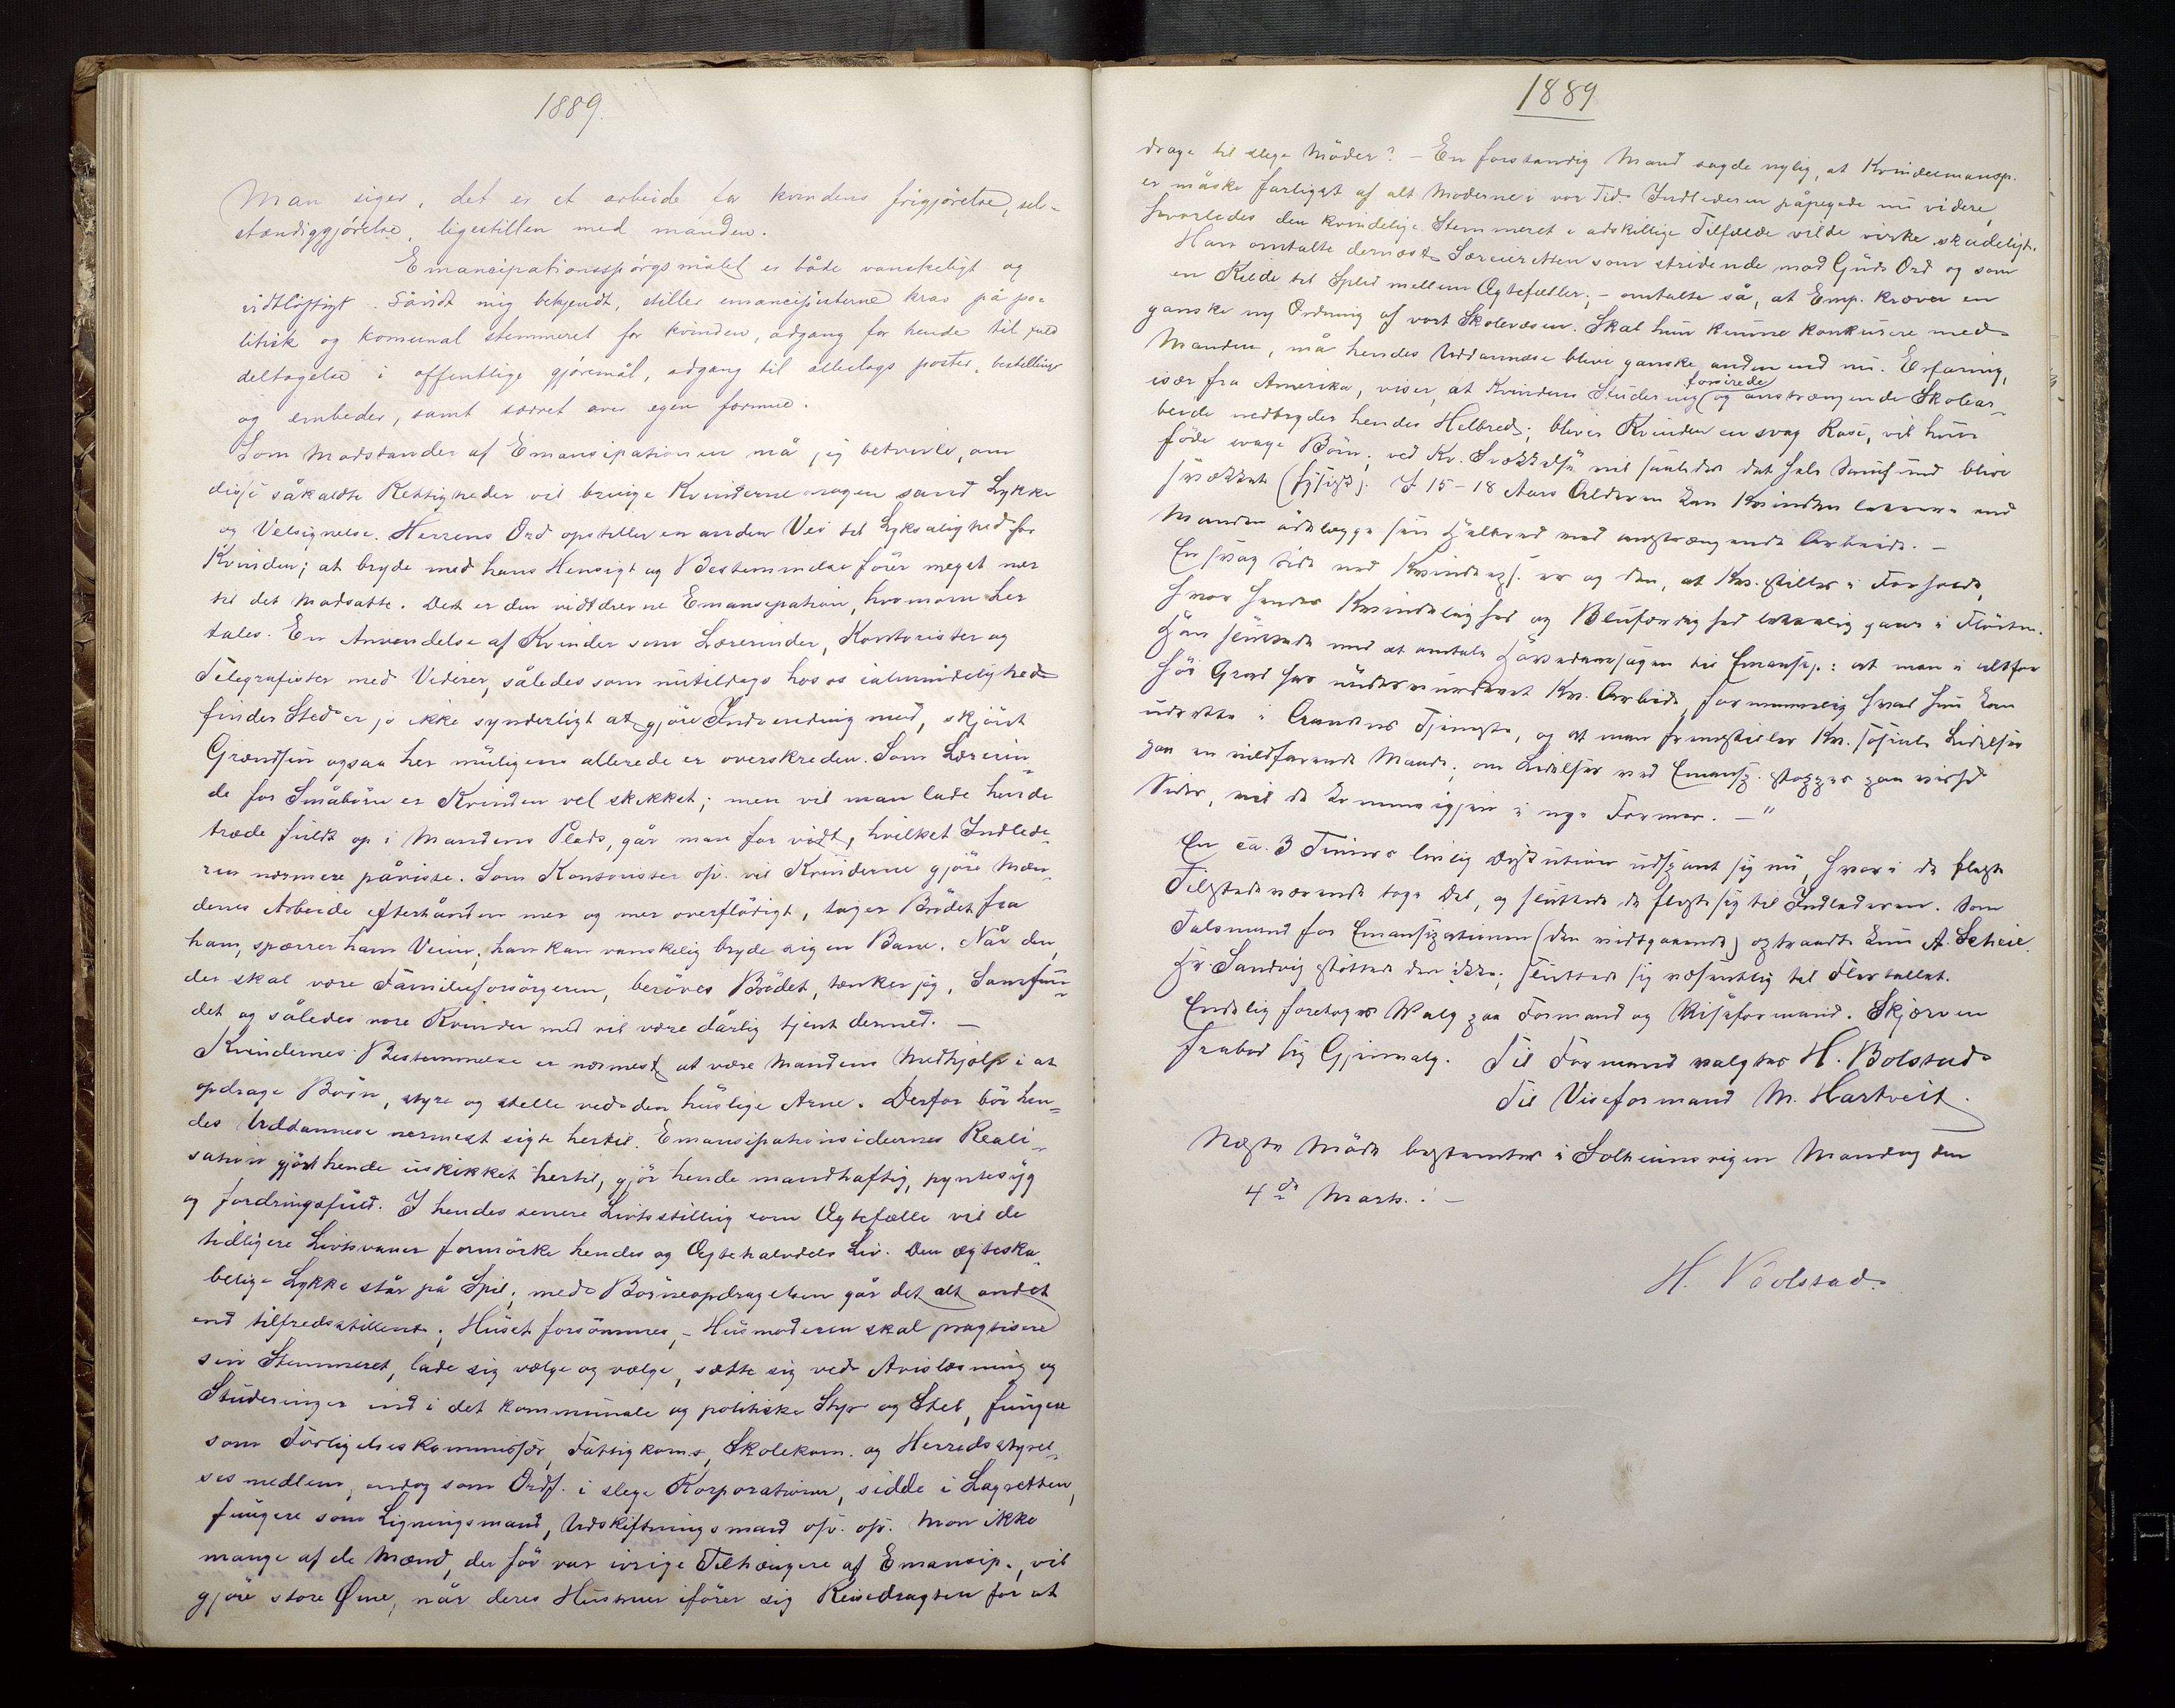 1889.
Man siger, det er et arbeide for kvindens frigjörelse, selv-
stændiggjörelse, ligestillen med manden.
Emancipationsspörgsmålet er både vanskeligt og
vidtlöftigt. Såvidt mig bekjendt, stiller emancipisterne krav på po-
litisk og komunal stemmeret for kvinden, adgang for hende til fuld
deltagelse i offentlige gjöremål, adgang til alleslags poster, bestillinger
og embeder, samt særret over egen formue.
Som Modstander af Emansipationen må jeg betvivle, om
disse såkaldte Rettigheder vil bringe Kvinderne nogen sand Lykke
og Velsignelse. Herrens Ord opstiller en anden Vei til Lyksalighed for
Kvinden; at bryde med hans Hensigt og Bestemmelse förer meget nær
til det Modsatte. Det er den vidtdrevne Emansipation, hvorom her
tales. En Anvendelse af Kvinder som Lærerinder, Kontorister og
Telegrafister med Videre, således som nutildags hos os i almindelighed
finder Sted er jo ikke synderligt at gjöre Indvending mod, skjönt
Grændsen ogsaa her muligens allerede er overskreden. Som Lærerin-
de for Småbörn er Kvinden vel skikket; men vil man lade hende
træde fuldt op i Mandens Plads, går man for vidt, hvilket Indlede-
ren nærmere påviste. Som Kontorister osv. vil Kvinderne gjöre Mæn-
denes Arbeide efterhånden mer og mer overflödigt, tager Brödet fra
ham, spærrer ham Veien; han kan vanskelig bryde sig en Bane. Når den,
der skal være Familieforsörgeren, beröves Brödet, tænker jeg, Samfun-
det og således vore Kvinder med vil være dårlig tjent dermed. —
Kvindernes Bestemmelse er nærmest at være Mandens Medhjælp i at
opdrage Börn, styre og stelle ved den huslige Arne. Derfor bör hen-
des Uddannelse nærmest sigte hertil. Emansipationsideernes Reali-
sation gjör hende uskikket hertil, gjör hende mandhaftig, pyntesyg
og fordringsfuld. I hendes senere Livsstilling som Ægtefælle vil de
tidligere Livsvaner formörke hendes og Ægtehalvdels Liv. Den ægteska-
belige Lykke står på Spil; med Börneopdragelsen går det alt andet
end tilfredsstillende; Huset forsömmes, – Husmoderen skal pragtisere
sin Stemmeret, lade sig vælge og vælge, sætte sig ved Avislæsning og
Studeringer ind i det kommunale og politiske Styr og Stel, fungere
som Forligelseskommissær, Fattigkoms, Skolekom. og Herredsstyrel-
sesmedlem, endog som Ordf. i slege Korporationer, sidde i Lagretten,
fungere som Ligningsmand, Udskiftningsmand osv. osv. Mon ikke
mange af de Mænd, der för var ivrige Tilhængere af Emansip., vil
gjöre store Øine, når deres Hustruer iförer sig Reisedragten for at
1889
drage til slege Möder? – En forstandig Mand sagde nylig, at Kvindeemansp.
er måske farligst af alt Moderne i vor Tid. Indlederen påpegede nu videre,
hvorledes den kvindelige Stemmeret i adskillige Tilfælde vilde virke skadeligt.
Han omtalte dernæst Særeieretten som stridende mod Guds Ord og som
en Kilde til Splid mellem Ægtefæller; – omtalte så, at Emp. kræver en
ganske ny Ordning af vort Skolevæsen. Skal hun kunne konkurere med
Manden, må hendes Uddannelse blive ganske anden end nu. Erfaring,
især fra Amerika, viser, at Kvindens Studering og forcirede anstrængende Skolear-
beide nedbryder hendes Helbred; bliver Kvinden en svag Rase, vil hun
föde svage Börn; ved Kv. Svækkelse vil saaledes det hele Samfund blive
svækket (fysisk). I 15–18 Aars Alderen kan Kvinden lettere end
Manden ödelægge sin Helbred med anstrængende Arbeide. –
En svag Side ved Kvindesps. er og den, at Kv. stilles i Forhold,
hvor hendes Kvindelighed og Blufærdighed lettelig gaar i Flöiten.
Han sluttede med at omtale Hovedaarsagen til Emansp.: at man i altfor
höi Grad har undervurderet Kv. Arbeide, fornemmelig hvad hun kan
udrette i Aandens Tjeneste, og at man fremstiller Kv. sosiale Lidelser
paa en vildfarende Maade; om Lidelser ved Emansp. stoppes paa visse
Sider, vil de komme igjen i nye Former. – "
En ca. 3 Timers livlig Diskution udspant sig nu, hvori de fleste
Tilstedeværende toge Del, og sluttede de fleste sig til Indlederen. Som
Talsmand for Emansipationen (den vidtgaaende) optraadte kun A. Scheie.
Hr. Sandvig støttede den ikke; sluttede sig væsentlig til Flertallet.
Endelig foretoges Valg paa Formand og Viseformand. Skjerven
frabad sig Gjenvalg. Til Formand valgtes H. Bolstad
Til Viseformand M. Hartveit.
Næste Möde bestemtes i Solheimsvigen Mandag den
4de Marts. –
H. Bolstad.